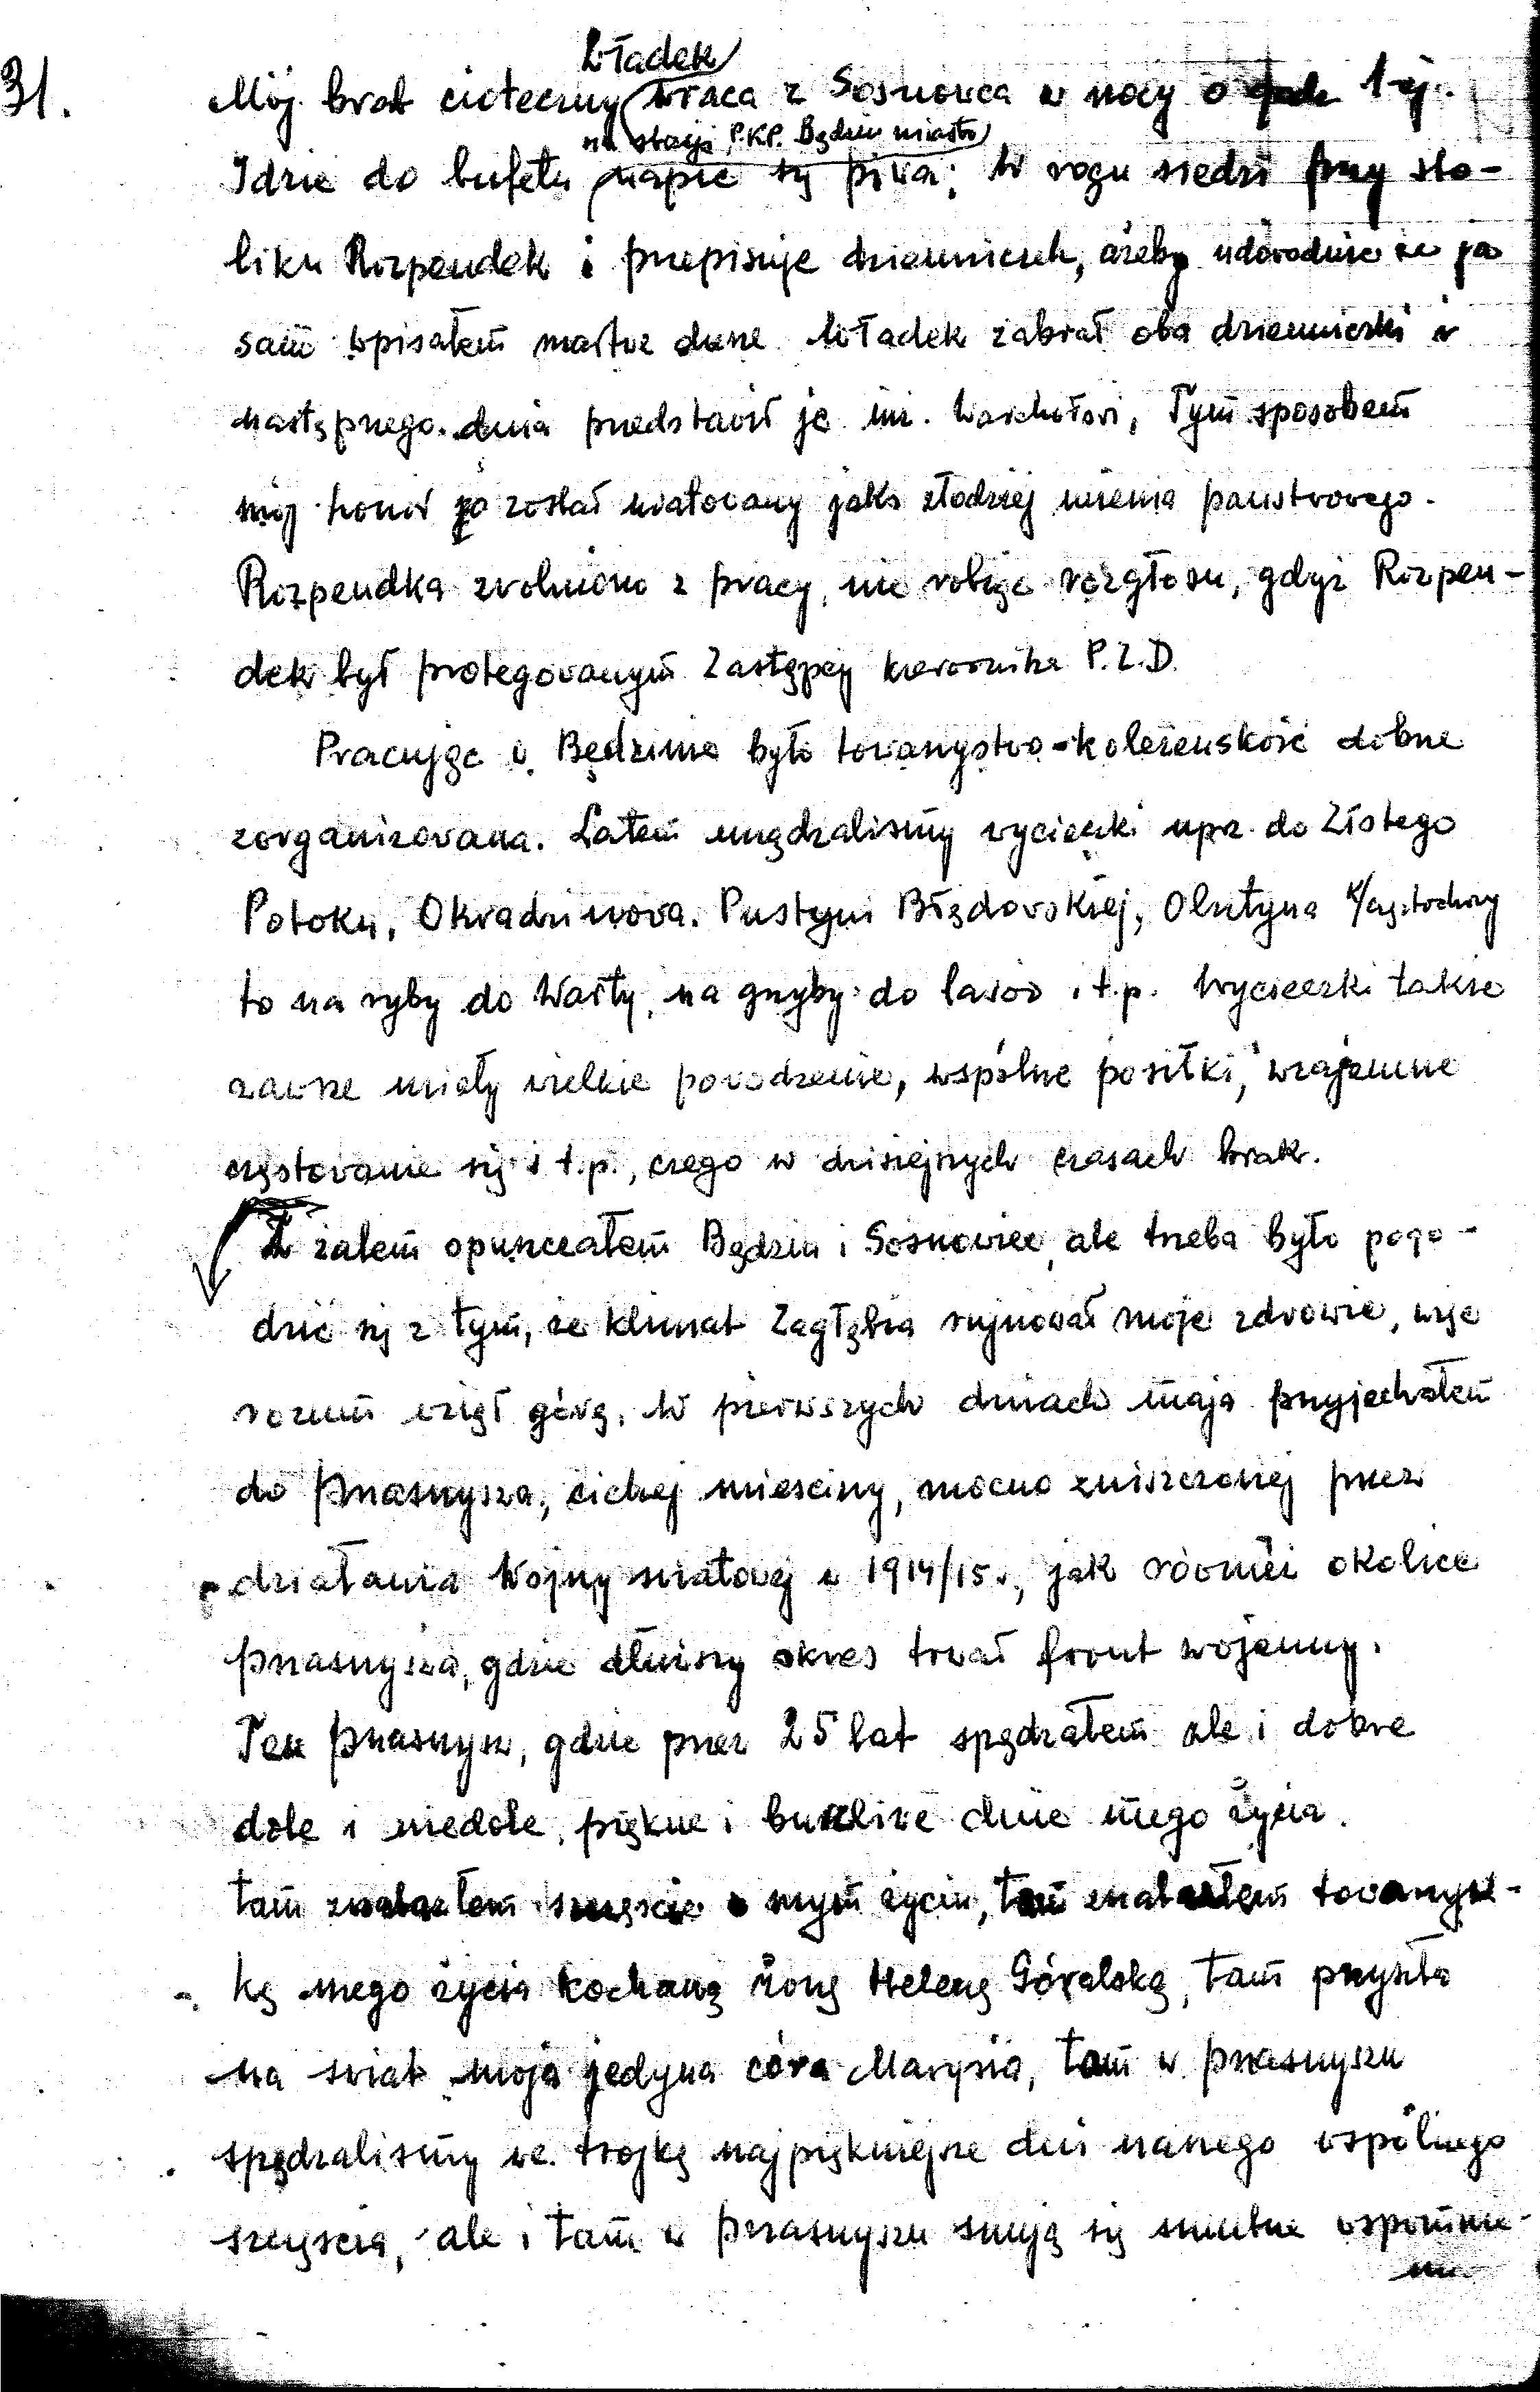 31.
Władek
Mój brat cioteczny wraca z Sosnowca w nocy o godz 1-ej.
na stacji P.K.P. Będzin miasto
Idzie do bufetu napić się piwa; W rogu siedzi przy sto-
liku Rozpendek i przepisuje dzienniczek, ażeby udowodnić że ja
sam wpisałem martwe dusze. Władek zabrał oba dzienniczki i
następnego dnia przedstawił je inż. Warchołowi, Tym sposobem
mój honor został uratowany jako złodziej mienia państwowego.
Rozpendka zwolniono z pracy, nie robiąc rozgłosu, gdyż Rozpen-
dek był protegowanym Zastępcy kierownika P.Z.D.
Pracując w Będzinie było towarzystwo-koleżeńskość dobrze
zorganizowana. Latem urządzaliśmy wycieczki npz. do Złotego
Potoku, Okradzinowa. Pustyni Błędowskiej, Olsztyna k/Częstochowy
to na ryby do Warty, na grzyby do lasów i t.p. Wycieczki takie
zawsze miały wielkie powodzenie, wspólne posiłki, wzajemne
częstowanie się i t.p., czego w dzisiejszych czasach brak.
Z żalem opuszczałem Będzin i Sosnowiec, ale trzeba było pogo-
dzić się z tym, że klimat Zagłębia rujnował moje zdrowie, więc
rozum wziął górę. W pierwszych dniach maja przyjechałem
do Przasnysza, cichej mieściny, mocno zniszczonej przez
działania Wojny światowej w 1914/15 r., jak również okolice
Przasnysza, gdzie dłuższy okres trwał front wojenny.
Ten Przasnysz, gdzie przez 25 lat spędzałem złe i dobre
dole i niedole, piękne i burzliwe dnie mego życia.
Tam znalazłem szczęście w mym życiu, tam znalazłem towarzysz-
kę mego życia kochaną żonę Helenę Góralską, tam przyszła
na świat moja jedyna córa Marysia, tam w Przasnyszu
spędzaliśmy we trójkę najpiękniejsze dni naszego wspólnego
szczęścia, ale i tam w Przasnyszu snują się smutne wspomnie-
nia